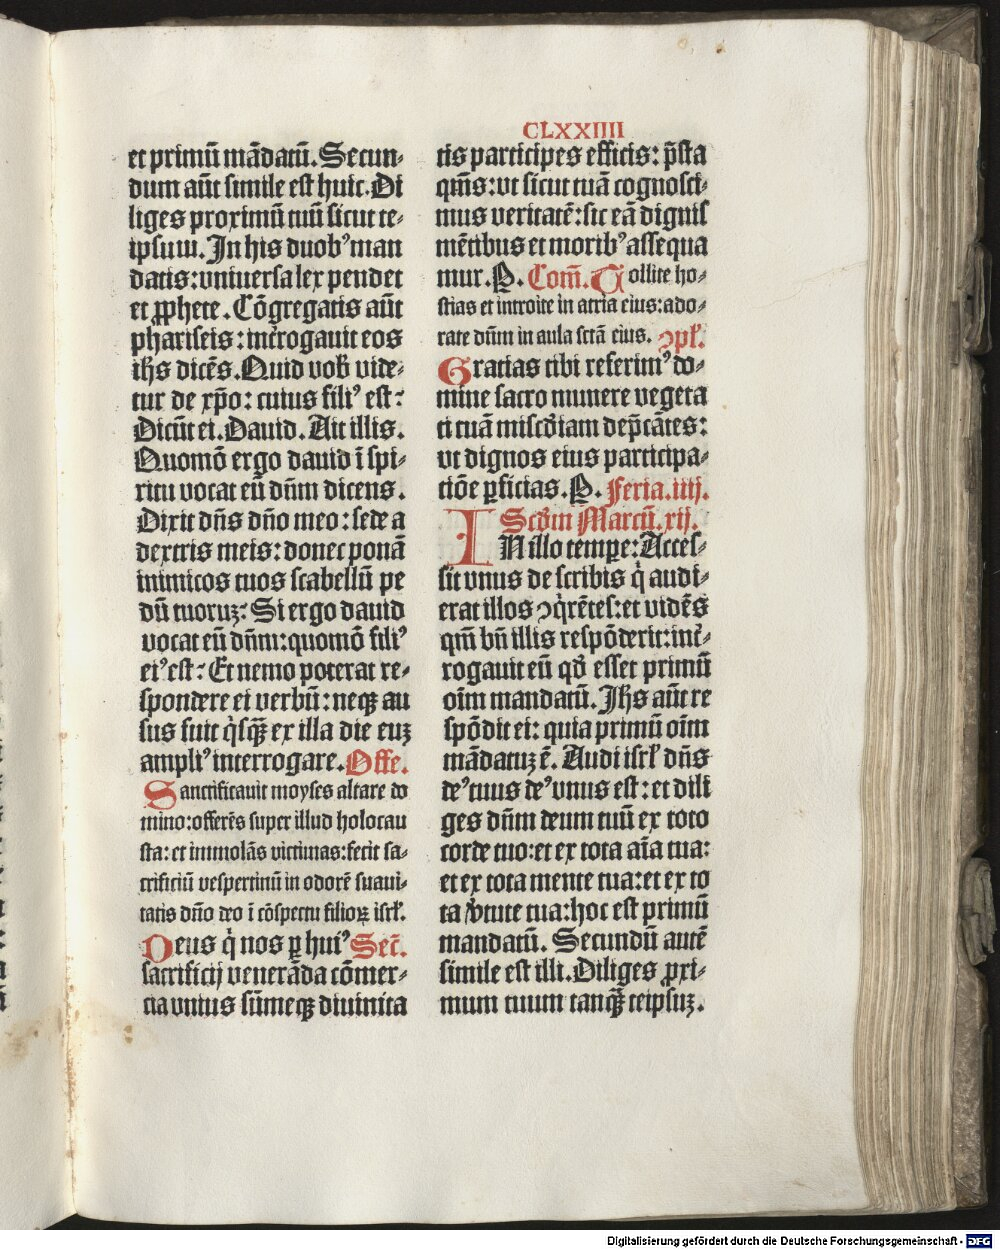 CLXXIIII
et primū mādatū. Secun-
dum aūt simile est huic. Di
liges proximū tuū sicut te-
ipsum. In his duobꝰ man
datis: vniuersa lex pendet
et ꝓphete. Cōgregatis aūt
phariseis: interrogauit eos
ihs dicēs. Quid vob̄ vide-
tur de xp̄o: cuius filiꝰ est:
Dicūt ei. Dauid. Ait illis.
Quomō ergo dauid ī spi-
ritu vocat eū dn̄m dicens.
Dixit dn̄s dn̄o meo: sede a
dextris meis: donec ponā
inimicos tuos scabellū pe
dū tuoruꝫ: Si ergo dauid
vocat eū dn̄m: quomō filiꝰ
eiꝰ est: Et nemo poterat re-
spondere ei verbū: neqꝫ au
sus fuit q̇sqꝫ̄ ex illa die euꝫ
ampliꝰ interrogare. Offe.
Sanctificauit moyses altare do
mino: offerēs super illud holocau
sta: et immolās victimas: fecit sa-
crificiū vespertinū in odorē suaui-
tatis dn̄o deo ī cōspectu filioꝝ isrl̄.
Deus q̇ nos ꝑ huiꝰ Secr̄.
sacrificij venerāda cōmer-
cia vnius sūmeqꝫ diuinita
tis participes efficis: p̄sta
qm̄s: vt sicut tuā cognosci-
mus veritatē: sic eā dignis
mētibus et moribꝰ assequa
mur. P. Com̄. Tollite ho-
stias et introite in atria eius: ado-
rate dn̄m in aula sctā eius. ↄpl̄.
Gratias tibi referimꝰ do-
mine sacro munere vegeta
ti tuā misc̄diam dep̄cātes:
vt dignos eius participa-
tiōe ꝑficias. P. Feria. iiij.
Scd̄m Marcū. xij.
IN illo tempe: Acces-
sit vnus de scribis q̇ audi-
erat illos ↄq̇rētes: et vidēs
qm̄ bn̄ illis respōderit: int̄-
rogauit eū qd̄ esset primū
oīm mandatū. Ihs aūt re
spōdit ei: quia primū oīm
mādatuꝫ ē. Audi isrl̄ dn̄s
deꝰ tuus deꝰ vnus est: et dili
ges dn̄m deum tuū ex toto
corde tuo: et ex tota aīa tua:
et ex tota mente tua: et ex to
ta v̄tute tua: hoc est primū
mandatū. Secundū autē
simile est illi. Diliges ꝓxi-
mum tuum tanqꝫ̄ teipsuꝫ.
Digitalisierung gefördert durch die Deutsche Forschungsgemeinschaft - DFG